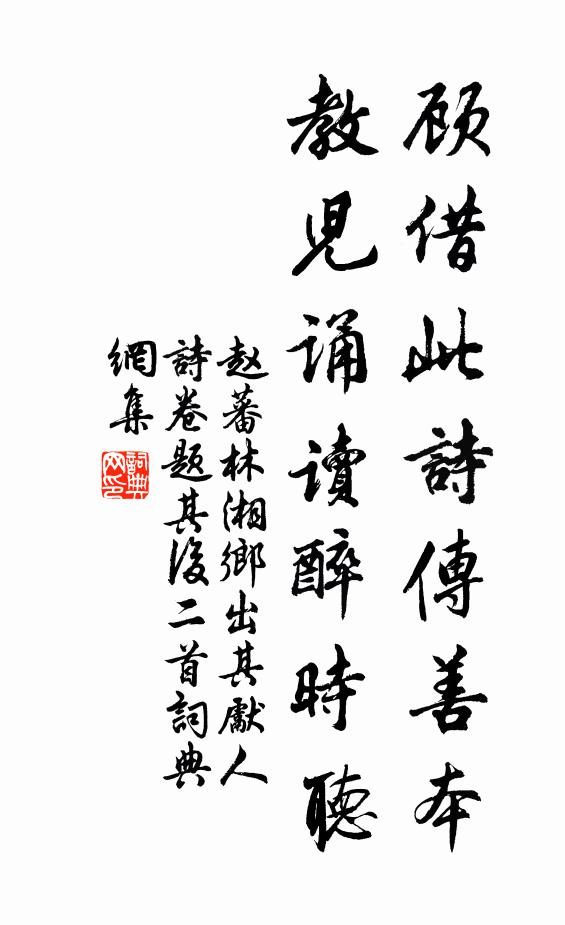 顾借此詩傳善本
教児誦讀醉時聽
赵蕃林湘鄉出其獻人
詩卷題其後二首詞典
網集
詞典網印